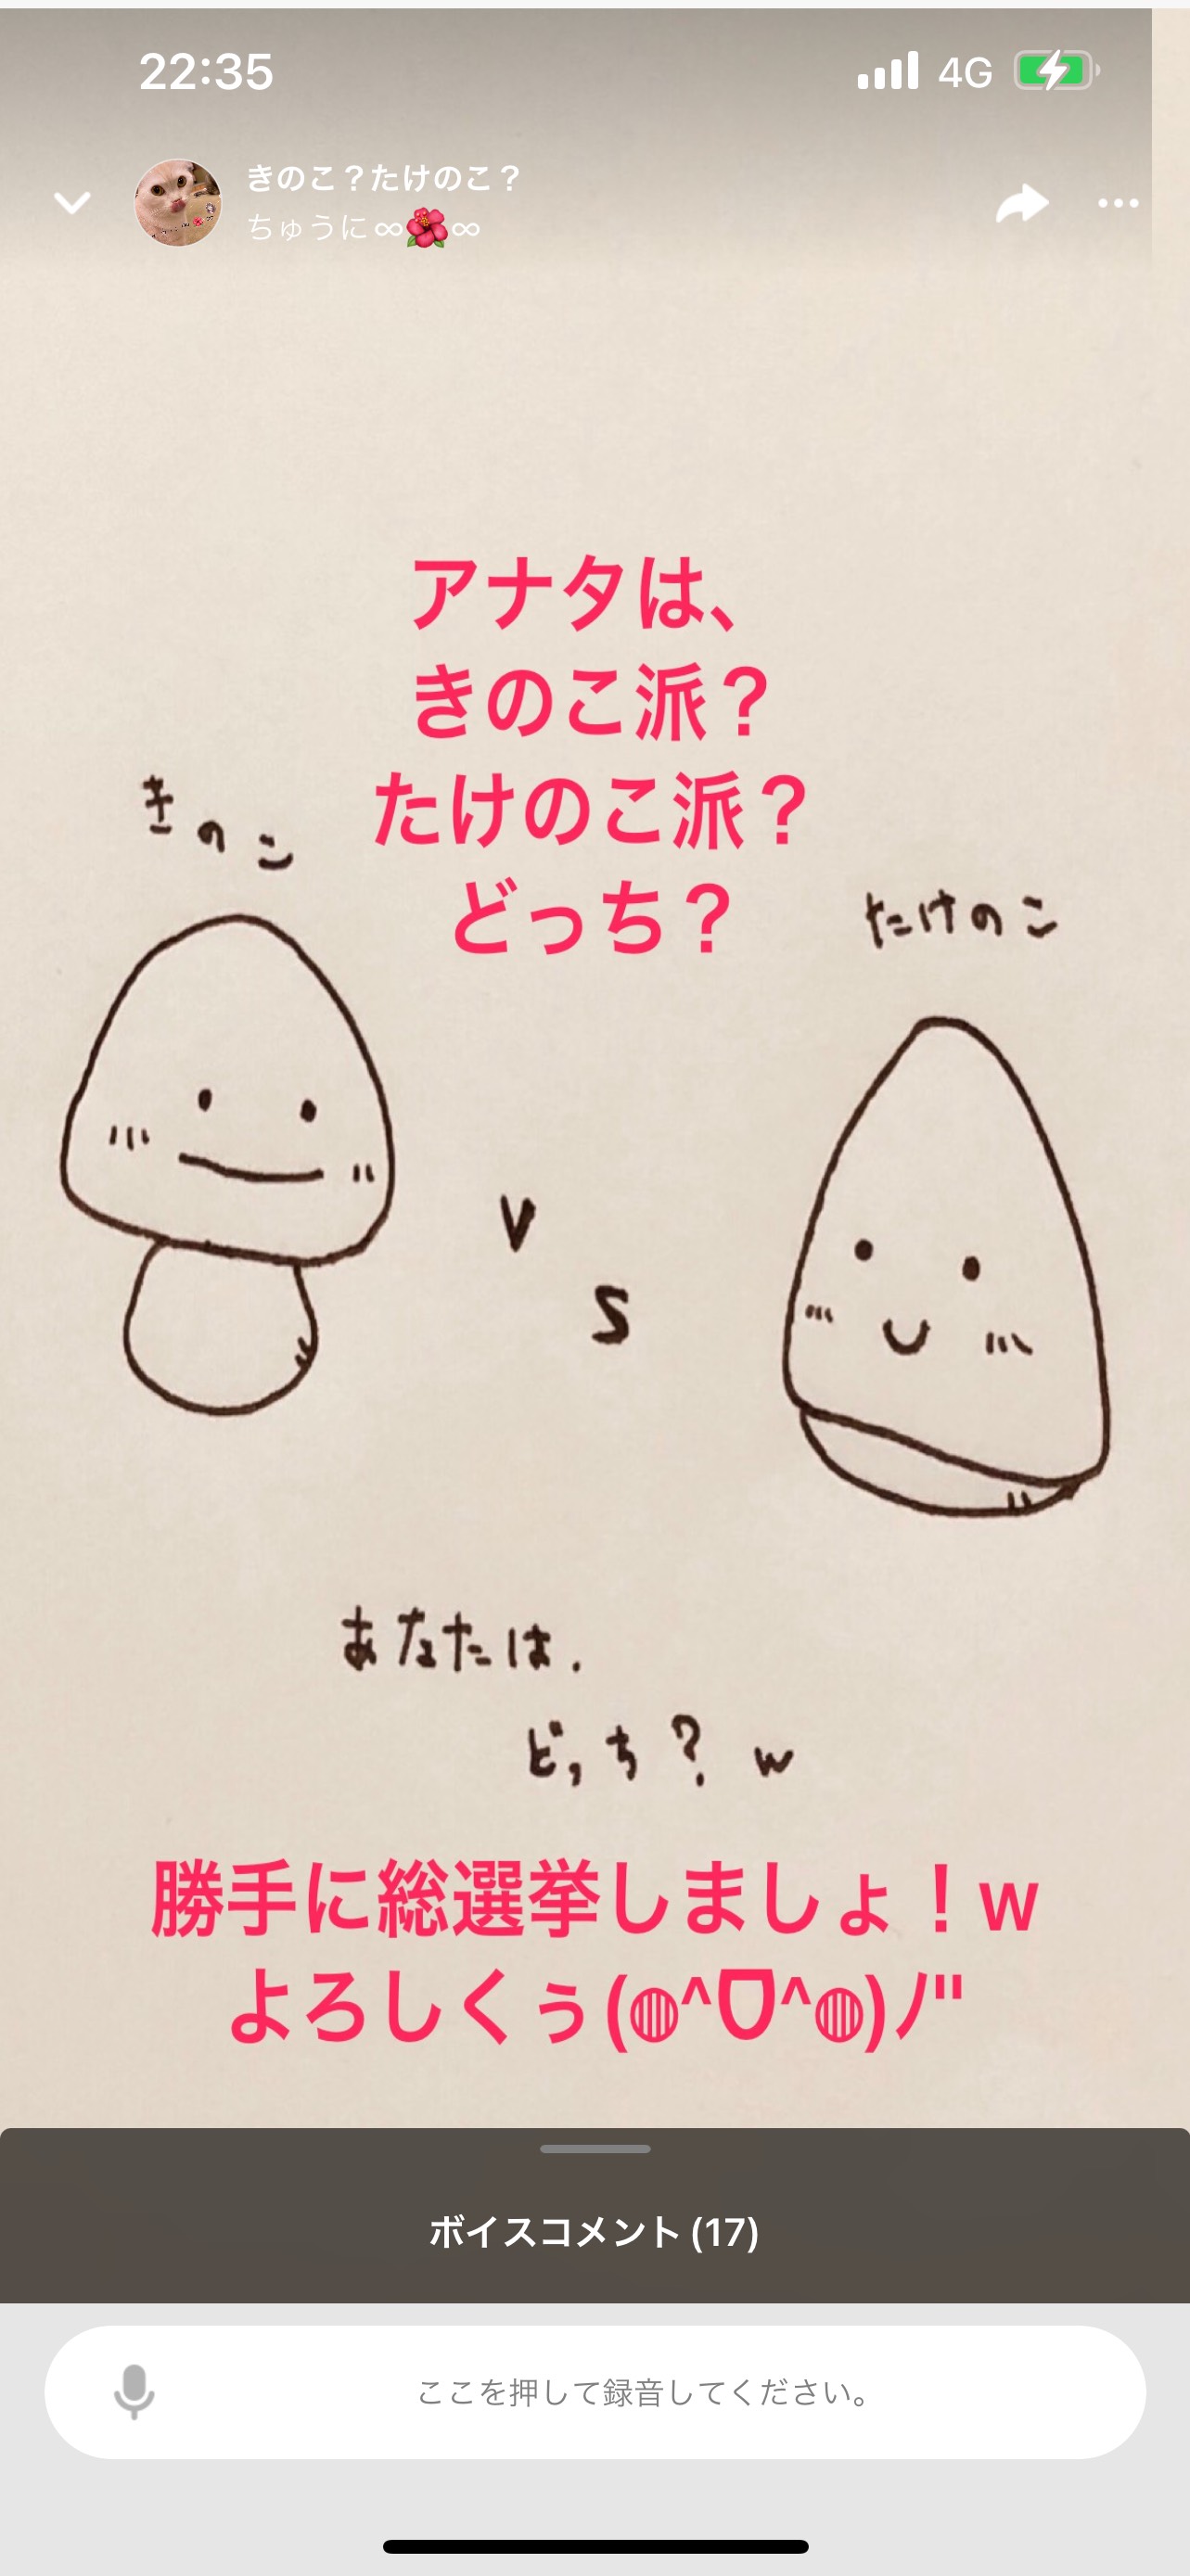 22:35
4G
きのこ？たけのこ？
ちゅうに∞🌺∞
アナタは、
きのこ派？
たけのこ派？
どっち？
きのこ
たけのこ
V
S
あなたは.
どっち？ w
勝手に総選挙しましょ！w
よろしくぅ(◍^ᗜ^◍)ﾉ"
ボイスコメント (17)
ここを押して録音してください。